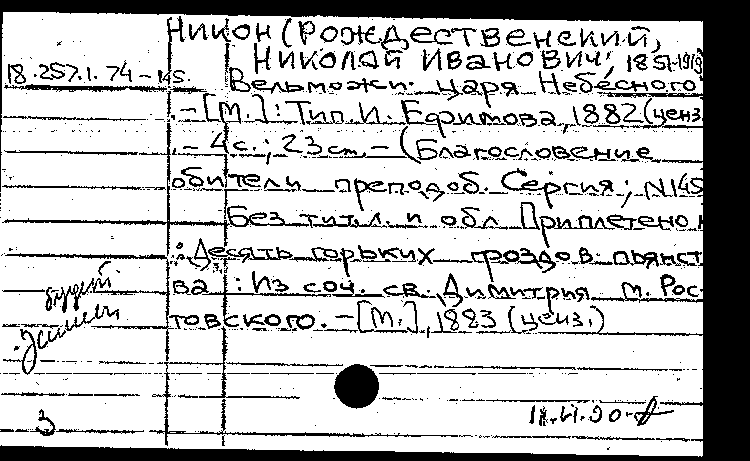 Никон (Рождественский,
Николай Иванович; 1851-1918
18.257.1.74-145.
Вельможи царя Небесного
.-[М.]: Тип. И. Ефимова, 1882 (ценз.
.- 4 с.; 23 см. - (Благословение
обители преподоб. Сергия; N145
Без тит. л. и обл Приплетено к
: Десять горьких гроздов пьянст
ва : Из соч. св. Димитрия м. Рос-
товского. - [М.], 1883 (ценз.)
будет
3
18.VI.90